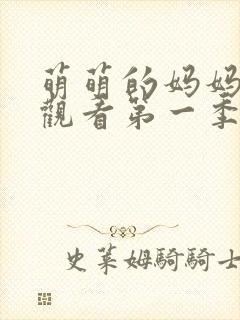 萌萌的妈妈
觀看第一季
史莱姆騎騎士